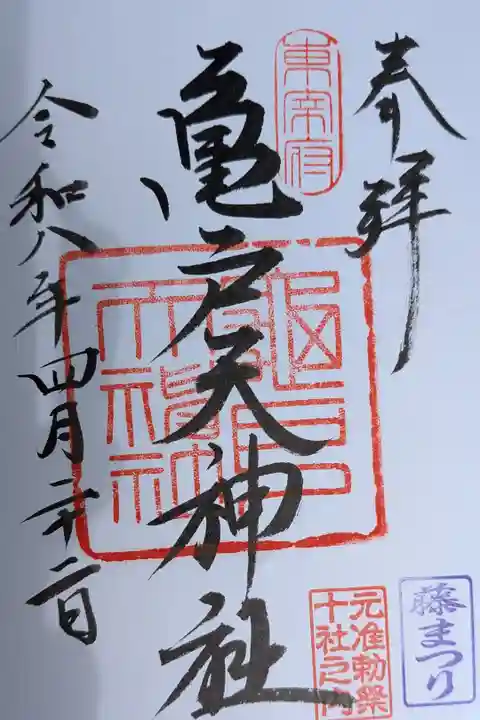 奉拝
東宰府
亀戸天神社
令和八年四月二十二日
元准勅祭
十社之内
藤まつり